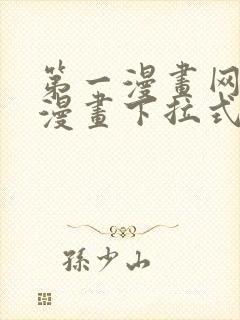 第一漫畫网
漫畫下拉式
孫少山